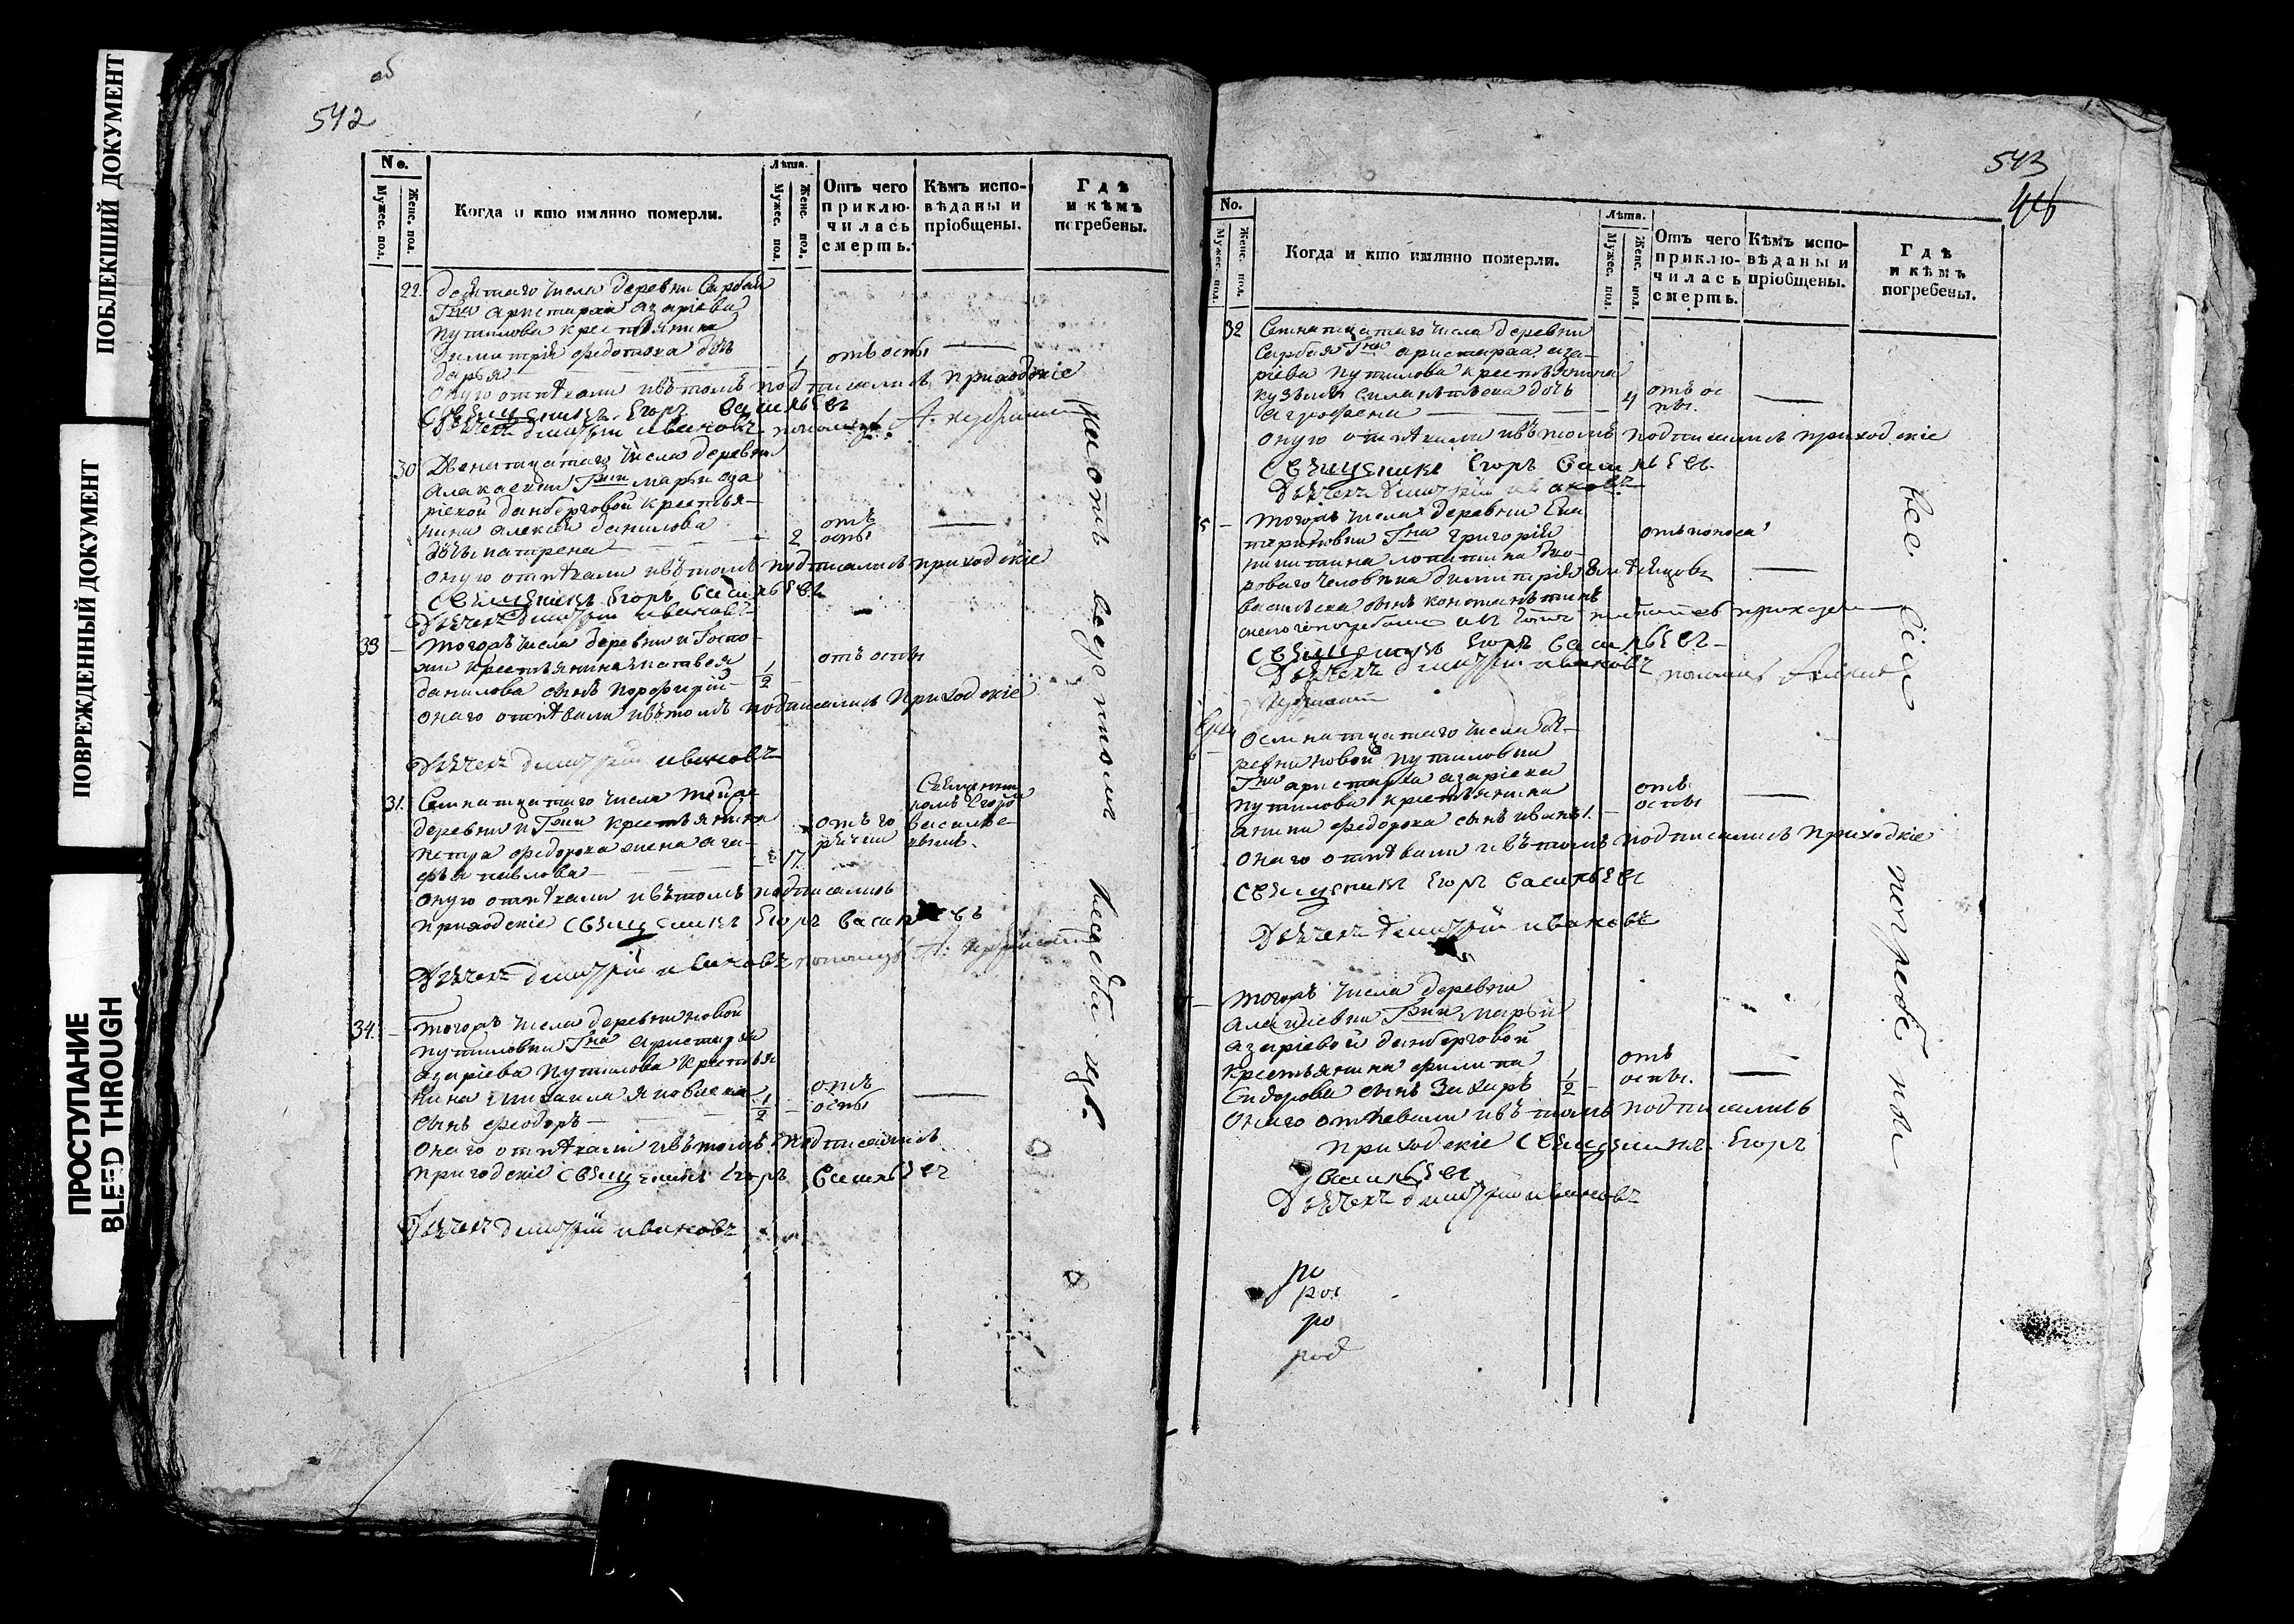 ПОБЛЕКШИЙ ДОКУМЕНТ
ПОВРЕЖДЕННЫЙ ДОКУМЕНТ
ПРОСТУПАНИЕ
BLEED THROUGH
об
542
No.
Мужес. пол.
Женс. пол.
Когда и кто имянно померли.
Лѣта.
Мужес. пол.
Женс. пол.
Отъ чего приклю-
чилась
смерть.
Кѣмъ испо-
вѣданы и
пріобщены.
Гдѣ
и кѣмъ
погребены.
22. десятаго числа деревни Сарбай
Гна аристарха азаріева
путилова крестьянина
димитрія федотова дочь
дарья 1 отъ оспы —
оную отпѣвали и въ томъ подписались приходскіе
священникъ Егоръ васильевъ
Дьячекъ димитрій ивановъ
30 Двенатцатаго числа деревни
алакаевки Гжи марьи аза
ріевой данберговой крестья-
нина алексѣя данилова
дочь матрена 2 отъ оспы —
оную отпѣвали и въ томъ подписались приходскіе
священникъ Егоръ васильевъ
Дьячекъ димитрій ивановъ
33 — тогожъ числа деревни и Госпо-
жи крестьянина матвея
данилова сынъ порфирій 1/2 — отъ оспы
онаго отпѣвали и въ томъ подписались приходскіе
Дьячекъ димитрій ивановъ
31. Семнатцатаго числа тойже
деревни и Гжи крестьянина
петра федорова жена ага-
фья павлова — 17. отъ го
рячки
Священни
комъ Егоро
васильев
оную отпѣвали и въ томъ подписались
приходскіе священникъ Егоръ васильевъ
Дьячекъ димитрій ивановъ
34. — тогожъ числа деревни новой
путиловки Гна аристарха
азаріева путилова крестьян
нина михаила яковлева 1/2 — отъ оспы —
сынъ федоръ —
онаго отпѣвали и въ томъ подписались
приходскіе священникъ Егоръ васильевъ
Дьячекъ димитрій ивановъ
543
No.
Мужес. пол.
Женс. пол.
Когда и кто имянно померли.
Лѣта.
Мужес. пол.
Женс. пол.
Отъ чего
приклю-
чилась
смерть.
Кѣмъ испо-
вѣданы и
пріобщены.
Гдѣ
и кѣмъ
погребены.
32 Семнатцатаго числа деревни
Сарбая Гна аристарха аза-
ріева путилова крестьянина
кузьмы силантьева дочь
агрофена — 4 отъ ос
пы. —
оную отпѣвали и въ томъ подписались приходскіе
священникъ Егоръ васильевъ
Дьячекъ димитрій ивановъ
5 — тогожъ числа деревни Ека
териновки Гна григорія
никитина лопатина дво-
роваго человѣка димитрія отъ поноса —
васильева сынъ константинъ
священникъ Егоръ васильевъ
Дьячекъ димитрій ивановъ
осмнатцатаго числа де-
ревни новой путиловки
Гна аристарха азаріева
путилова крестьянина отъ
оспы —
аники федорова сынъ иванъ 1. —
онаго отпѣвали и въ томъ подписались приходскіе
священникъ Егоръ васильевъ
Дьячекъ димитрій ивановъ
— тогожъ числа деревни
алакаевки Гжи марьи
азаріевой данберговой
крестьянина филипа отъ
оспы. —
Сидорова сынъ Захаръ 1/2 —
онаго отпевали и въ томъ подписались
приходскіе священникъ Егоръ
васильевъ
Дьячекъ димитрій ивановъ
ро
ро
ро
род
все сіе погребены